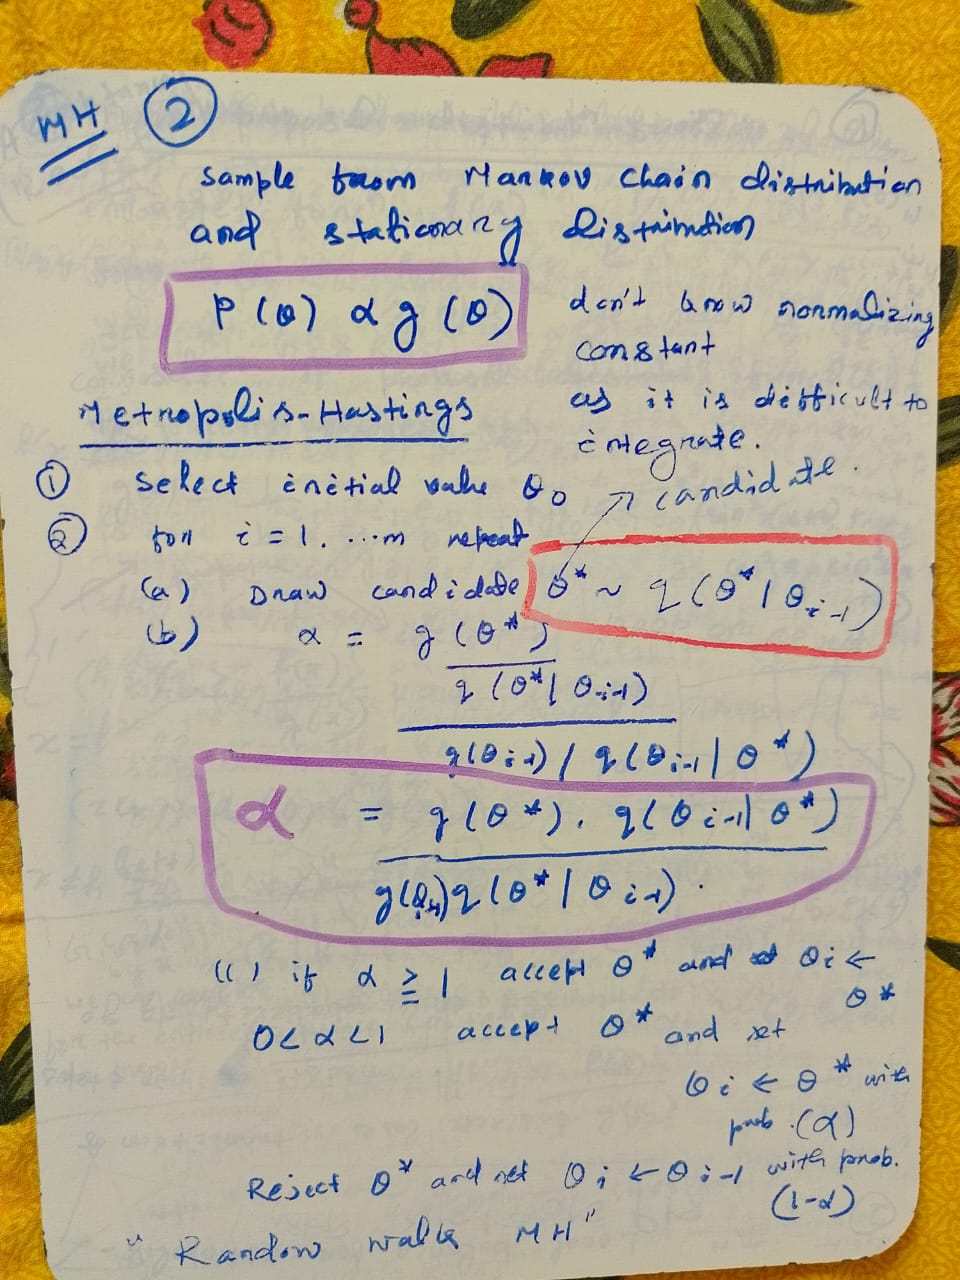 MH ②
sample from Markov Chain distribution
and stationary distribution
P(θ) α g(θ)
don't know normalizing
constant
as it is difficult to
integrate.
Metropolis-Hastings
① Select initial value θ₀
↗ candidate.
② for i = 1. ...m repeat
(a) Draw candidate θ* ~ q(θ*|θᵢ₋₁)
(b) α = g(θ*)
q(θ*|θᵢ₋₁)
g(θᵢ₋₁) / q(θᵢ₋₁|θ*)
α = g(θ*). q(θᵢ₋₁|θ*)
g(θᵢ₋₁) q(θ*|θᵢ₋₁).
(c) if α ≥ 1 accept θ* and set θᵢ ←
θ*
0<α<1 accept θ* and set
θᵢ ← θ* with
prob.(α)
Reject θ* and set θᵢ ← θᵢ₋₁ with prob.
(1-α)
"Random walk MH"